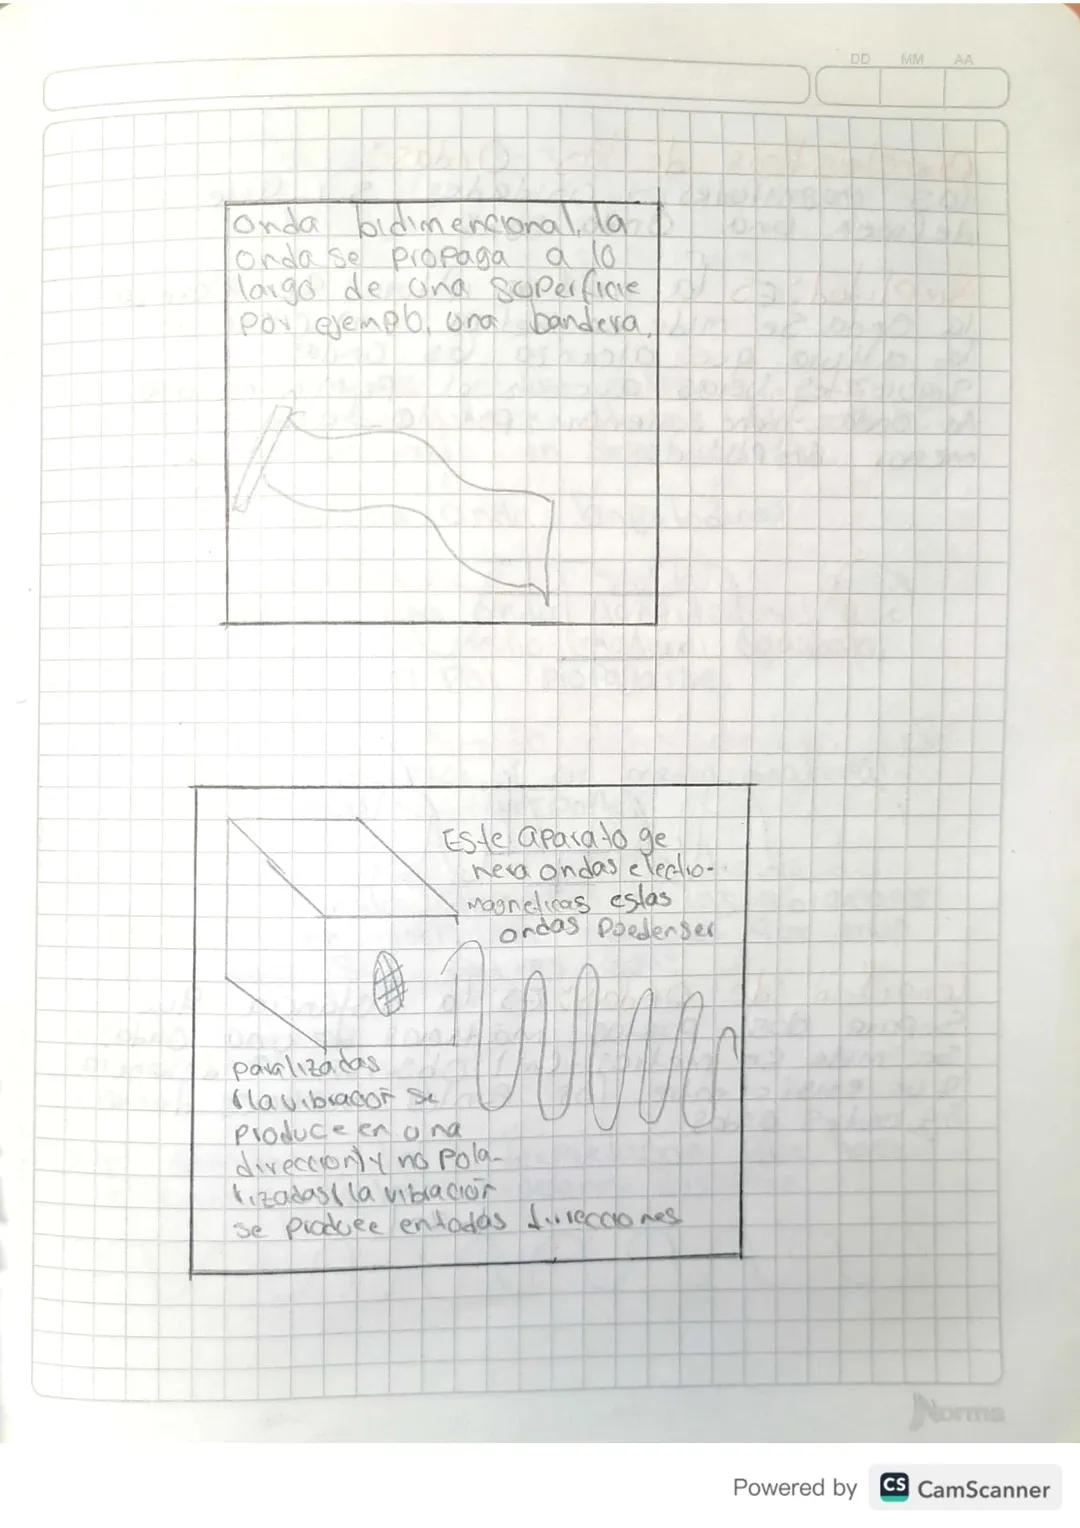 DD MM AA
Onda bidimencional, la
onda se propaga a lo
largo de una superficie
por ejemplo, una bandera,
Este aparato ge
nera ondas electro-
magneticas estas
ondas puedenser
paralizadas
(la vibracion se
produce en una
direccion) y no pola-
rizadas (la vibracion
se produce entodas direcciones
Norma
Powered by CS CamScanner